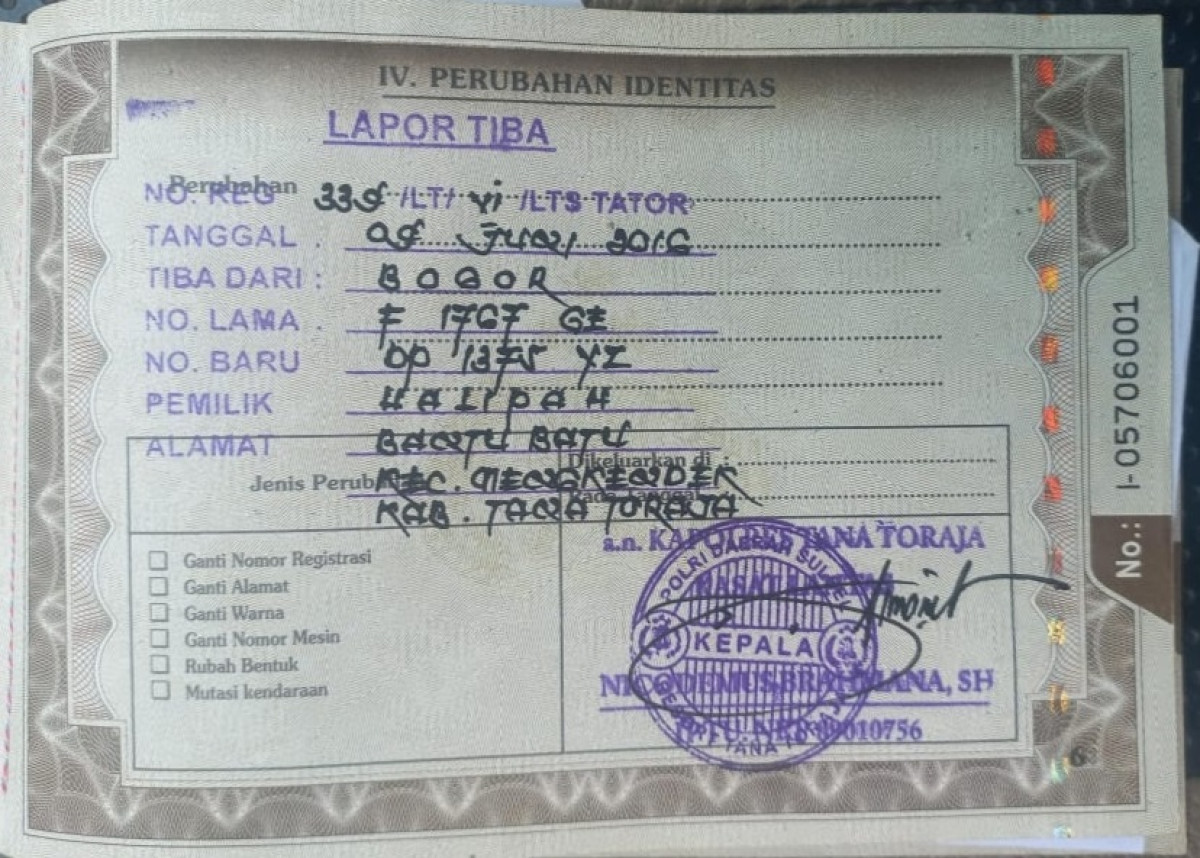 IV. PERUBAHAN IDENTITAS
LAPOR TIBA
Perubahan
NO. REG 339 /LT/ VI /LTS TATOR
TANGGAL : 09 JUNI 2016
TIBA DARI : BOGOR
NO. LAMA : F 1767 GE
NO. BARU DP 1375 YZ
PEMILIK HALIPAH
ALAMAT BANTU BATU
Dikeluarkan di :
Jenis Perub KEC. MENGKENDEK
Pada Tanggal
KAB. TANA TORAJA
a.n. KAPOLRES TANA TORAJA
KASAT LANTAS
Ganti Nomor Registrasi
Ganti Alamat
Ganti Warna
Ganti Nomor Mesin
Rubah Bentuk
Mutasi kendaraan
POLRI DAERAH SULSEL
KEPALA
TANA TORAJA
NICODEMUS BRAHMANA, SH
No.: I-05706001